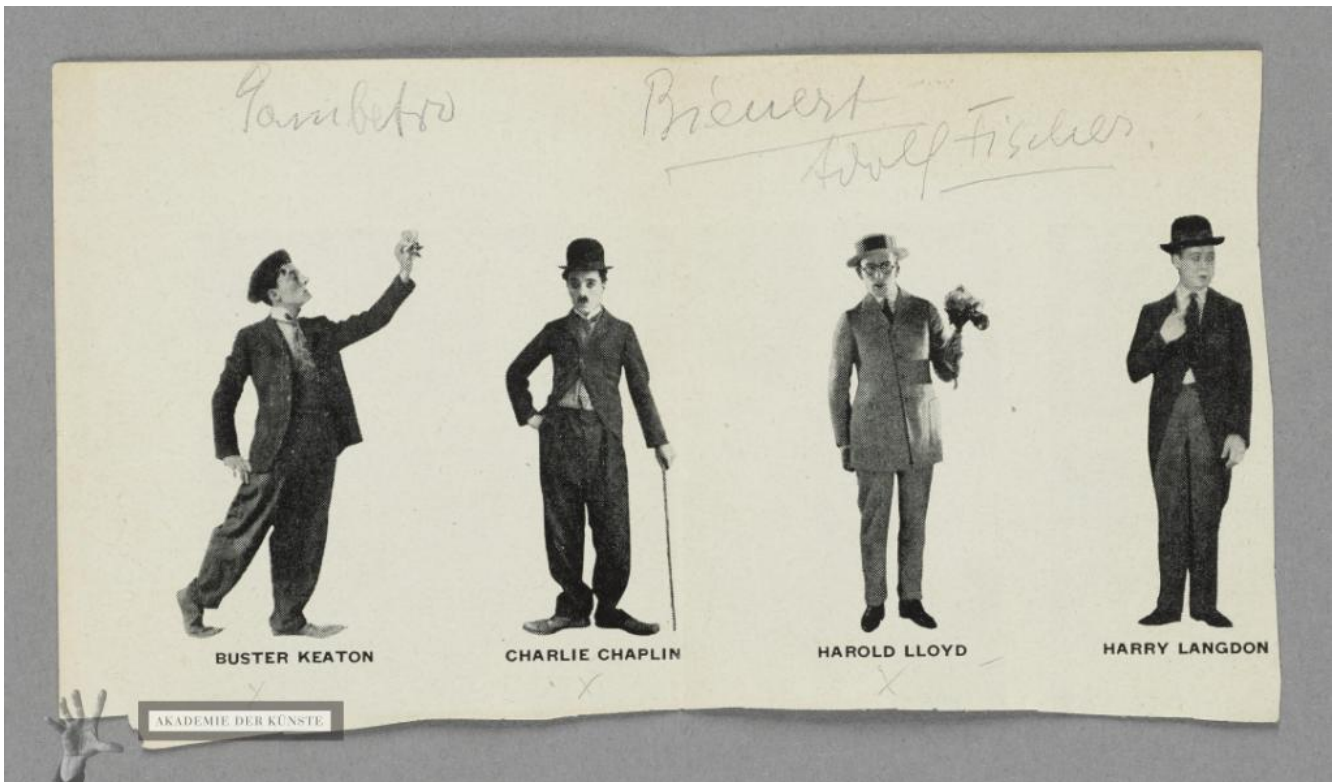 Bienert
Adolf Fischer.
BUSTER KEATON
CHARLIE CHAPLIN
HAROLD LLOYD
HARRY LANGDON
AKADEMIE DER KÜNSTE